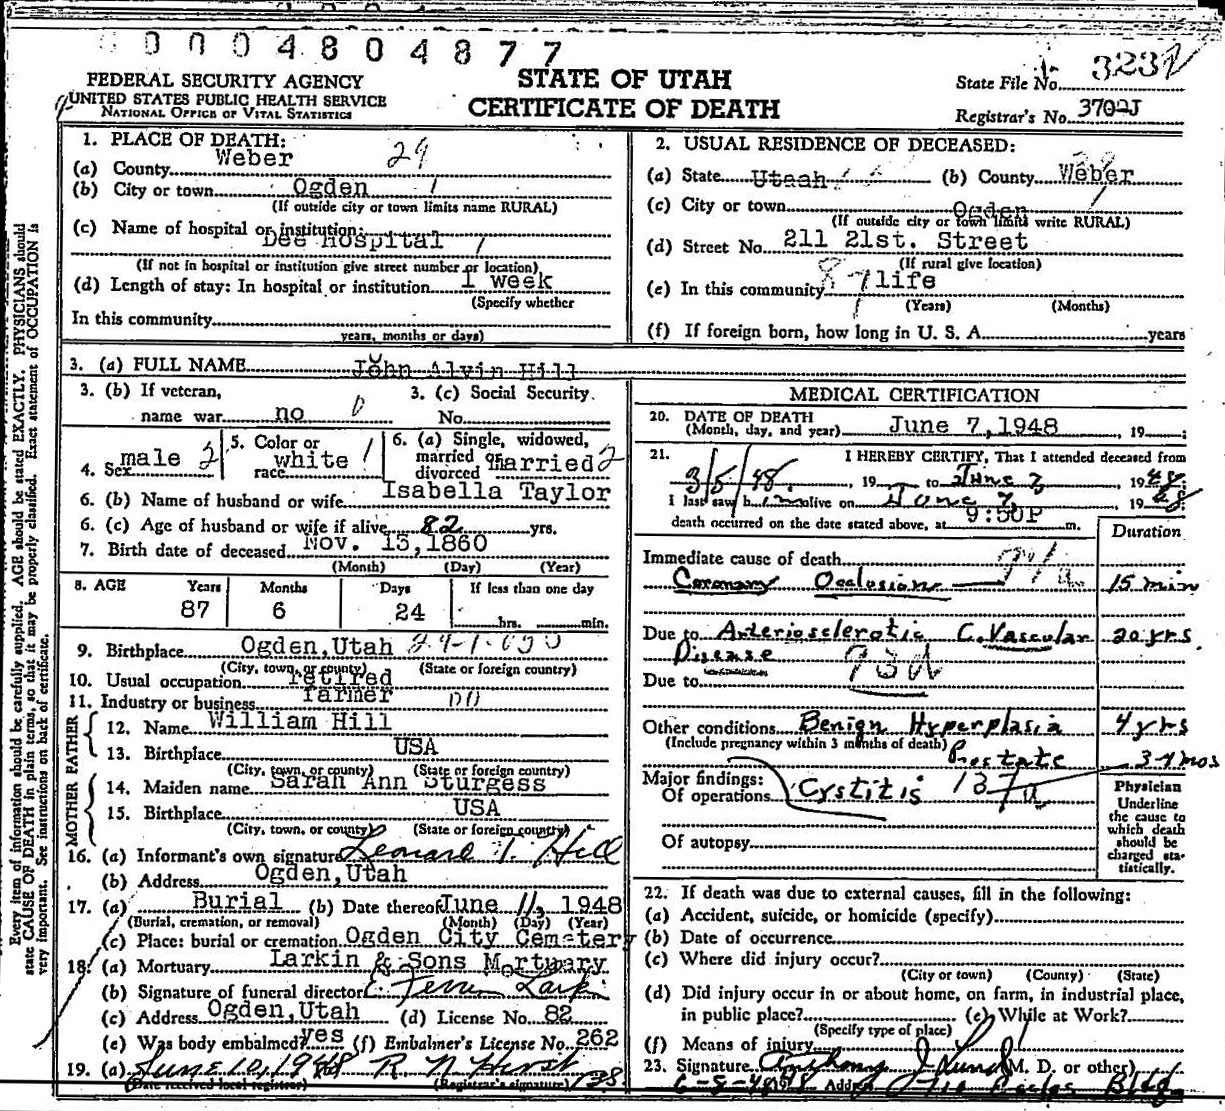 0004804877
FEDERAL SECURITY AGENCY
UNITED STATES PUBLIC HEALTH SERVICE
NATIONAL OFFICE OF VITAL STATISTICS
STATE OF UTAH
CERTIFICATE OF DEATH
State File No. 323
Registrar's No. 370-J
Every item of information should be carefully supplied. AGE should be stated EXACTLY. PHYSICIANS should
state CAUSE OF DEATH in plain terms, so that it may be properly classified. Exact statement of OCCUPATION is
very important. See instructions on back of certificate.
1. PLACE OF DEATH:
(a) County Weber 29
(b) City or town Ogden 1
(If outside city or town limits name RURAL)
(c) Name of hospital or institution:
Dee Hospital 1
(If not in hospital or institution give street number or location)
(d) Length of stay: In hospital or institution 1 week
(Specify whether
In this community
years, months or days)
2. USUAL RESIDENCE OF DECEASED:
(a) State Uteah (b) County Weber
(c) City or town Ogden
(If outside city or town limits write RURAL)
(d) Street No. 211 21st. Street
(If rural give location)
(e) In this community 87 life
(Years) (Months)
(f) If foreign born, how long in U. S. A. years
3. (a) FULL NAME John Alvin Hill
3. (b) If veteran, 3. (c) Social Security
name war no 0 No.
4. Sex male 2 5. Color or race white 1 6. (a) Single, widowed, married or divorced married 2
6. (b) Name of husband or wife Isabella Taylor
6. (c) Age of husband or wife if alive 82 yrs.
7. Birth date of deceased Nov. 15,1860
(Month) (Day) (Year)
8. AGE Years Months Days If less than one day
87 6 24 hrs. min.
9. Birthplace Ogden,Utah
(City, town, or county) (State or foreign country)
10. Usual occupation retired
11. Industry or business farmer
MOTHER FATHER
12. Name William Hill
13. Birthplace USA
(City, town, or county) (State or foreign country)
14. Maiden name Sarah Ann Sturgess
15. Birthplace USA
(City, town, or county) (State or foreign country)
16. (a) Informant's own signature Leonard T. Hill
(b) Address Ogden,Utah
17. (a) Burial (b) Date thereof June 11, 1948
(Burial, cremation, or removal) (Month) (Day) (Year)
(c) Place: burial or cremation Ogden City Cemetery
18. (a) Mortuary Larkin & Sons Mortuary
(b) Signature of funeral director Larkin
(c) Address Ogden,Utah (d) License No. 82
(e) Was body embalmed? yes (f) Embalmer's License No. 262
19. (a) June 10, 1948 R N Hirst 138
(Date received local registrar) (Registrar's signature)
MEDICAL CERTIFICATION
20. DATE OF DEATH
(Month, day, and year) June 7,1948, 19
21. I HEREBY CERTIFY, That I attended deceased from
3/5/48, 19 to June 7 1948
I last saw him alive on June 7, 1948
death occurred on the date stated above, at 9:50P m.
Duration
Immediate cause of death
Coronary Occlusion 94a 15 min
Due to Arteriosclerotic C. Vascular 20 yrs
Disease 93d
Due to
Other conditions Benign Hyperplasia 4 yrs
(Include pregnancy within 3 months of death) Prostate
3-4 mos
Major findings:
Of operations Cystitis 137a
Of autopsy
Physician
Underline
the cause to
which death
should be
charged sta-
tistically.
22. If death was due to external causes, fill in the following:
(a) Accident, suicide, or homicide (specify)
(b) Date of occurrence
(c) Where did injury occur?
(City or town) (County) (State)
(d) Did injury occur in or about home, on farm, in industrial place,
in public place? (e) While at Work?
(Specify type of place)
(f) Means of injury
23. Signature Anthony J Lund (M. D. or other)
6-8-48 Address Eccles Bldg.